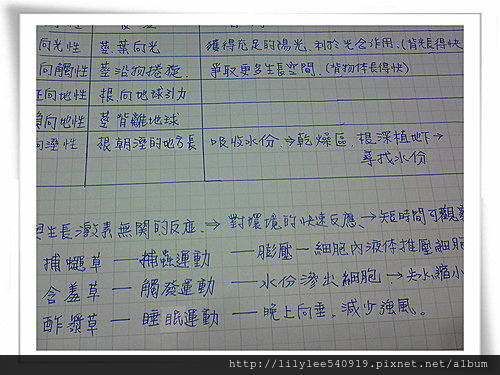 向光性 莖.葉向光 獲得充足的陽光.利於光合作用.(背光長得快
向觸性 莖沿物捲旋. 爭取更多生長空間.(背物体長得快)
向地性 根.向地球引力
向地性 莖背離地球
向溼性 根朝溼的地方長 吸收水份.→乾燥區.根深植地下→
尋找水份
生長激素無關的反應.⇒對環境的快速反應.→短時間可觀察
捕蠅草 — 捕蟲運動 — 膨壓—細胞內液体推壓細胞
含羞草 — 觸發運動 — 水份滲出細胞.→失水縮小
酢漿草 — 睡眠運動 — 晚上向垂.減少強風。
http://lilylee540919.pixnet.net/album